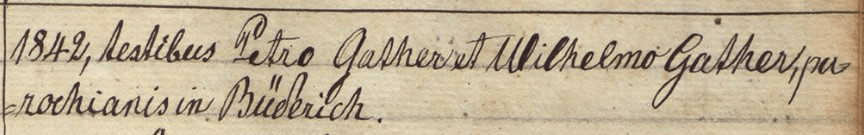 1842, testibus Petro Gather et Wilhelmo Gather, pa=
=rochianis in Büderich.